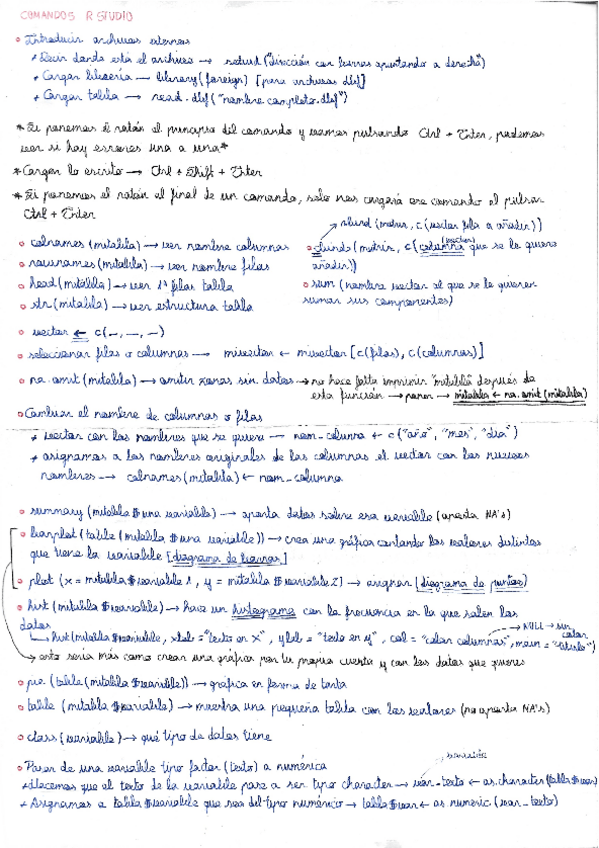 COMANDOS R STUDIO
• Introducir archivos externos
* Decir donde está el archivo → setwd ("Dirección con barras apuntando a derecha")
* Cargar librería → library (foreign) [para archivos dbf]
* Cargar tabla → read.dbf ("nombre completo.dbf")
* Si ponemos el ratón al principio del comando y vamos pulsando Ctrl + Enter, podemos
ver si hay errores una a una *
* Cargar lo escrito → Ctrl + Shift + Enter
* Si ponemos el ratón al final de un comando, solo nos cargará ese comando al pulsar
Ctrl + Enter
→ rbind (matriz, c (vector fila a añadir))
• colnames (mitabla) → ver nombre columnas
• cbind (matriz, c (columna (vector) que se le quiere
añadir))
• rownames (mitabla) → ver nombre filas
• head (mitabla) → ver 1ª filas tabla
• sum (nombre vector al que se le quieren
sumar sus componentes)
• str (mitabla) → ver estructura tabla
• vector ← c (_, _, _)
• seleccionar filas o columnas → mivector ← mivector [c (filas), c (columnas)]
• na.omit (mitabla) → omitir zonas sin datos → no hace falta imprimir "mitabla" después de
esta función → poner → mitabla ← na.omit (mitabla)
• Cambiar el nombre de columnas o filas
* vector con los nombres que se quiera → nom_columna ← c ("año", "mes", "dia")
* asignamos a los nombres originales de las columnas el vector con los nuevos
nombres → colnames (mitabla) ← nom_columna
• summary (mitabla $ una variable) → aporta datos sobre esa variable (aporta NA's)
• barplot (table (mitabla $ una variable)) → crea una gráfica contando los valores distintos
que tiene la variable [diagrama de barras]
• plot (x = mitabla $ variable 1, y = mitabla $ variable 2) → asignar [diagrama de puntos]
• hist (mitabla $ variable) → hace un histograma con la frecuencia en la que salen los
datos
→ NULL → sin
color
hist (mitabla $ variable, xlab = "texto en x", ylab = "texto en y", col = "color columnas", main = "título")
→ esto sería más como crear una gráfica por tu propia cuenta y con los datos que quieres
• pie (table (mitabla $ variable)) → gráfica en forma de tarta
• table (mitabla $ variable) → muestra una pequeña tabla con los valores (no aporta NA's)
• class (variable) → qué tipo de datos tiene
• Pasar de una variable tipo factor (texto) a numérica
variable
* Hacemos que el texto de la variable pase a ser tipo character → var_texto ← as.character (tabla $ var)
* Asignamos a tabla $ variable que sea del tipo numérico → tabla $ var ← as numeric (var_texto)